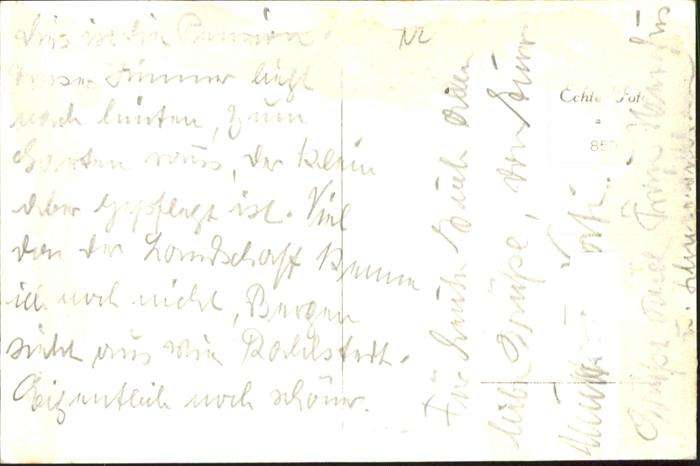 Dies ist die Pension.
Unser Zimmer liegt
nach hinten, zum
Garten raus, der klein
aber gepflegt ist. Viel
von der Landschaft kenne
ich noch nicht, Bergen
sieht aus wie Rahlstedt.
Eigentlich noch schöner.
Für heute Euch allen
liebe Grüße, von Eurer
Mutti
Grüße
Echte Foto